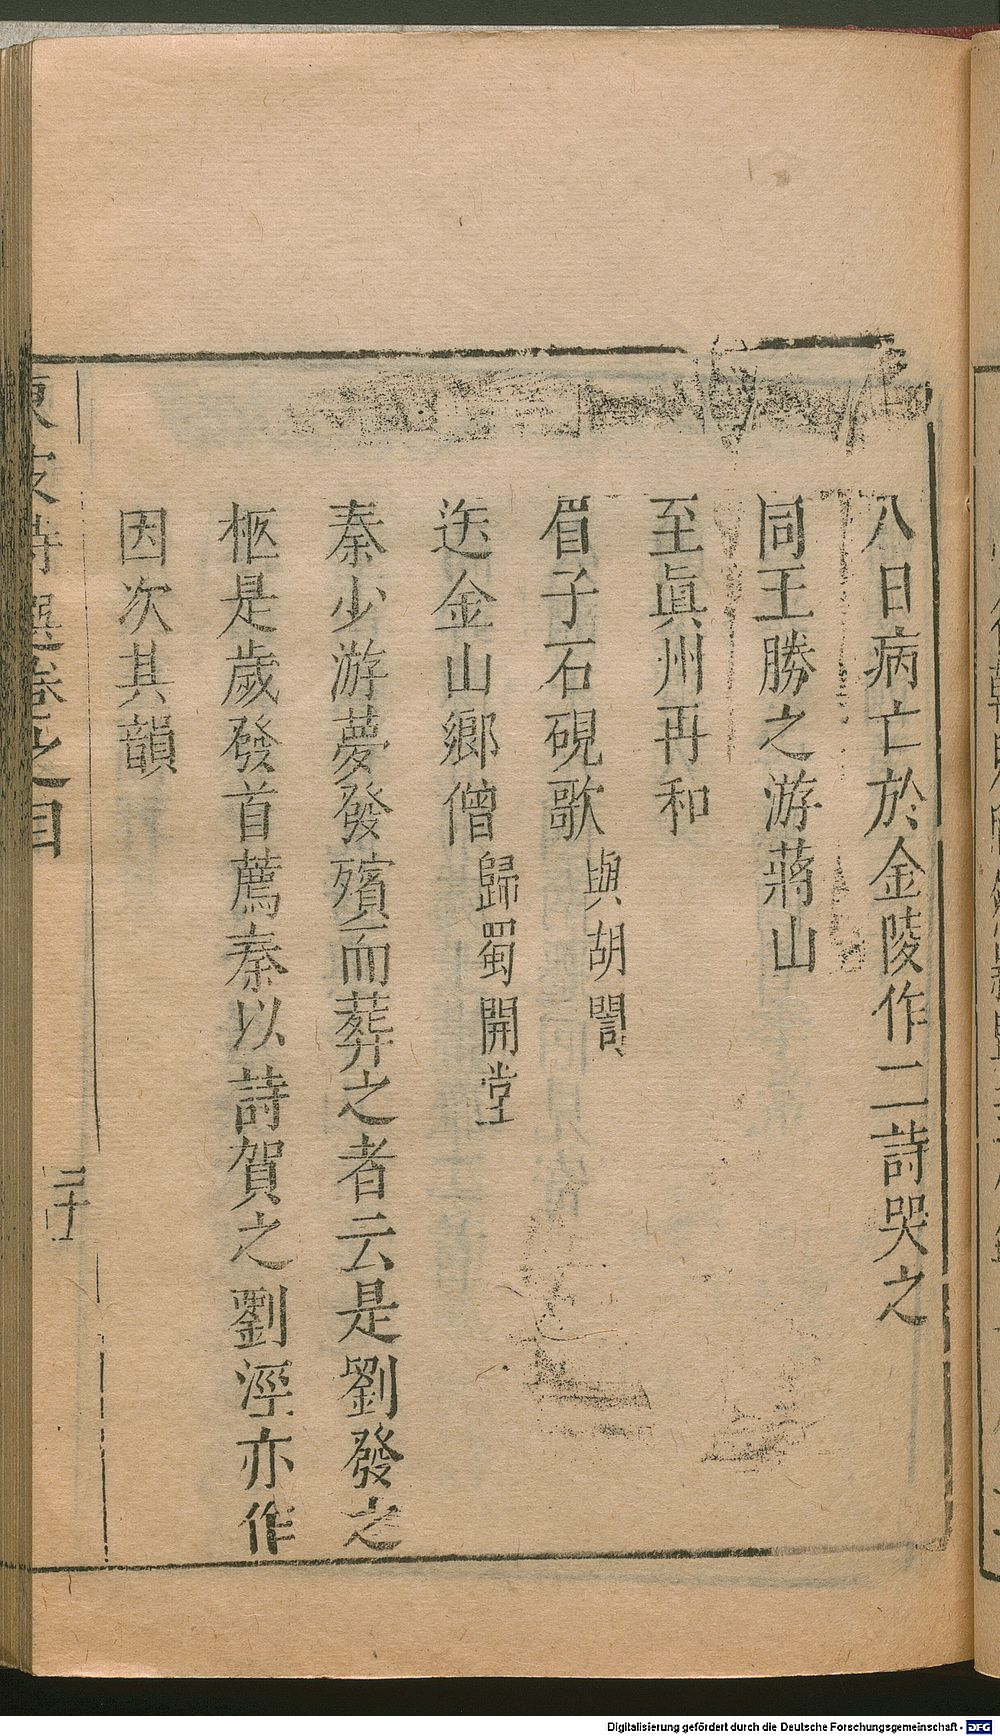 八日病亡於金陵作二詩哭之
同王勝之游蔣山
至眞州再和
眉子石硯歌與胡誾
送金山鄉僧歸蜀開堂
秦少游夢發殯而葬之者云是劉發之
柩是歲發首薦秦以詩賀之劉涇亦作
因次其韻
東坡詩選卷之目
二十
Digitalisierung gefördert durch die Deutsche Forschungsgemeinschaft - DFG